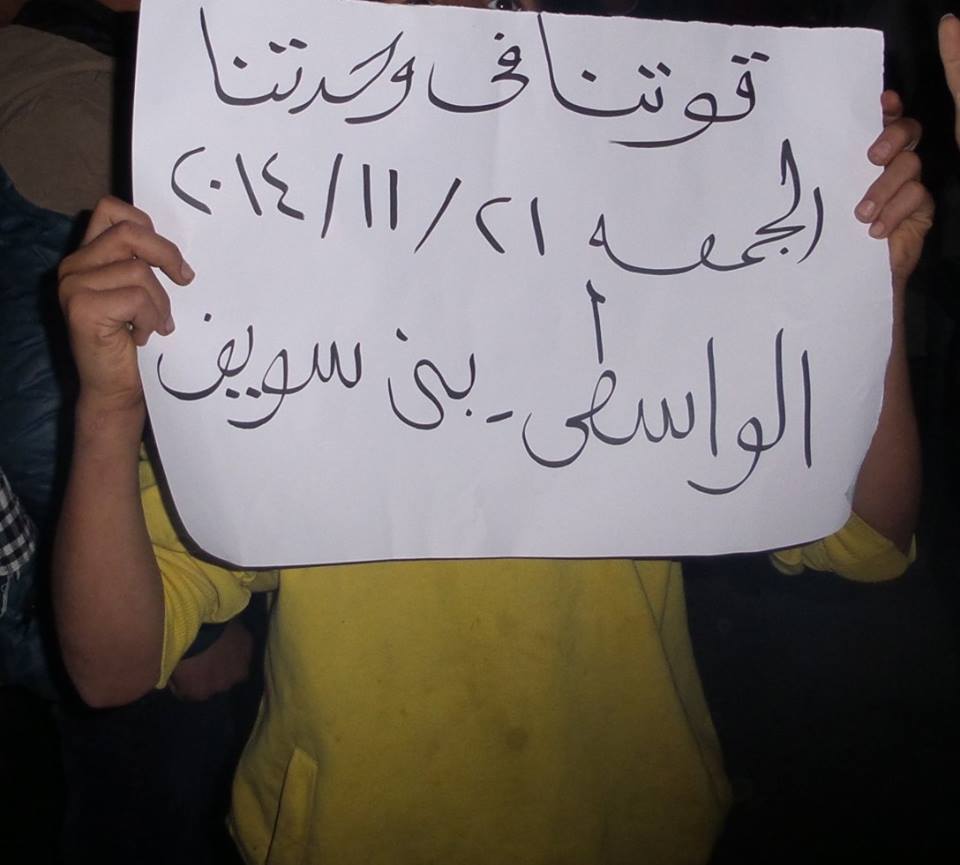 قوتنا فى وحدتنا
الجمعه ٢١ / ١١ / ٢٠١٤
الواسطى - بنى سويف